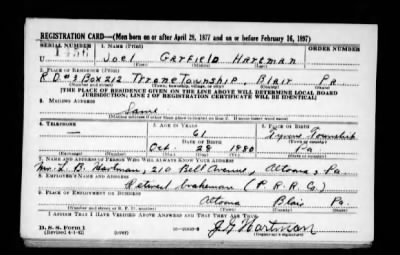 REGISTRATION CARD—(Men born on or after April 28, 1877 and on or before February 16, 1897)
SERIAL NUMBER 1. NAME (Print) ORDER NUMBER
U Joel Garfield Hartman
(First) (Middle) (Last)
2. PLACE OF RESIDENCE (Print)
R.D.#3 Box 212 Tyrone Township, Blair Pa
[THE PLACE OF RESIDENCE GIVEN ON THE LINE ABOVE WILL DETERMINE LOCAL BOARD
JURISDICTION; LINE 2 OF REGISTRATION CERTIFICATE WILL BE IDENTICAL]
3. MAILING ADDRESS
Same
4. TELEPHONE 5. AGE IN YEARS 6. PLACE OF BIRTH
61 Tyrone Township
DATE OF BIRTH
— Oct. 28 1880 Pa
7. NAME AND ADDRESS OF PERSON WHO WILL ALWAYS KNOW YOUR ADDRESS
Mrs. L. B. Hartman, 210 Bell Avenue, Altoona, Pa
8. EMPLOYER'S NAME AND ADDRESS
Retired brakeman (P.R.R. Co.)
9. PLACE OF EMPLOYMENT OR BUSINESS
Altoona Blair Pa.
I AFFIRM THAT I HAVE VERIFIED ABOVE ANSWERS AND THAT THEY ARE TRUE.
D. S. S. Form 1
(Revised 4-1-42) (over) J G Hartman
(Registrant's signature)